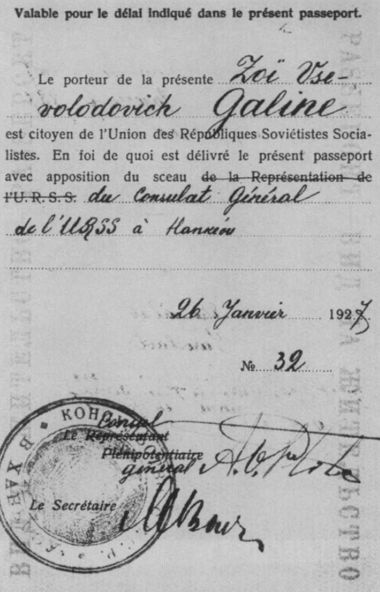 Valable pour le délai indiqué dans le présent passeport.
Le porteur de la présente Zoï Vse-
volodovich Galine
est citoyen de l'Union des Républiques Soviétistes Socia-
listes. En foi de quoi est délivré le présent passeport
avec apposition du sceau de la Représentation de
l'U.R.S.S. du Consulat Général
de l'URSS à Hankéou
26 Janvier 1927.
№ 32
КОНС
Consul
Le Représentant
Plénipotentiaire
général
Le Secrétaire
В ХАН